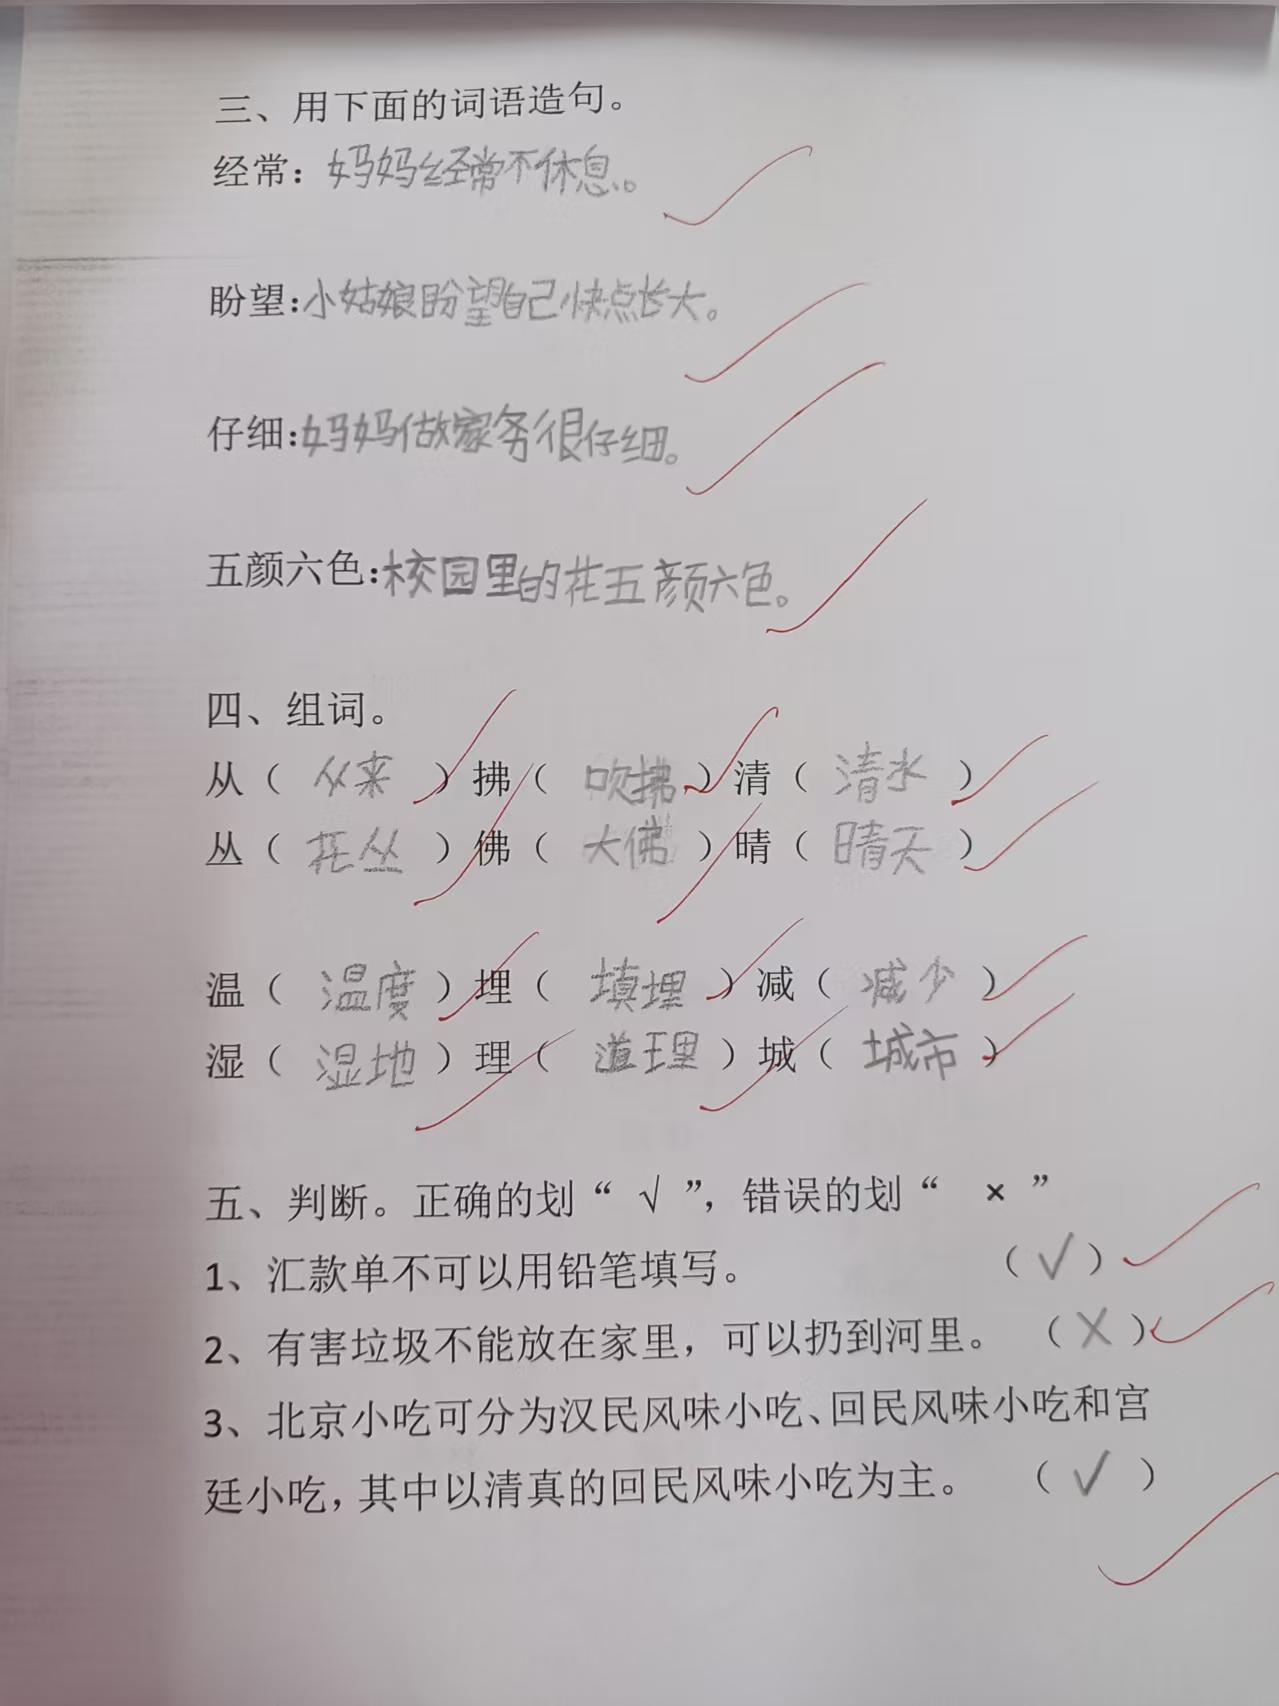 三、用下面的词语造句。
经常：妈妈经常不休息。
盼望：小姑娘盼望自己快点长大。
仔细：妈妈做家务很仔细。
五颜六色：校园里的花五颜六色。
四、组词。
从（ 从来 ）拂（ 吹拂 ）清（ 清水 ）
丛（ 花丛 ）佛（ 大佛 ）晴（ 晴天 ）
温（ 温度 ）埋（ 填埋 ）减（ 减少 ）
湿（ 湿地 ）理（ 道理 ）城（ 城市 ）
五、判断。正确的划“ √ ”，错误的划“ × ”
1、汇款单不可以用铅笔填写。 （ √ ）
2、有害垃圾不能放在家里，可以扔到河里。 （ × ）
3、北京小吃可分为汉民风味小吃、回民风味小吃和宫
廷小吃，其中以清真的回民风味小吃为主。 （ √ ）